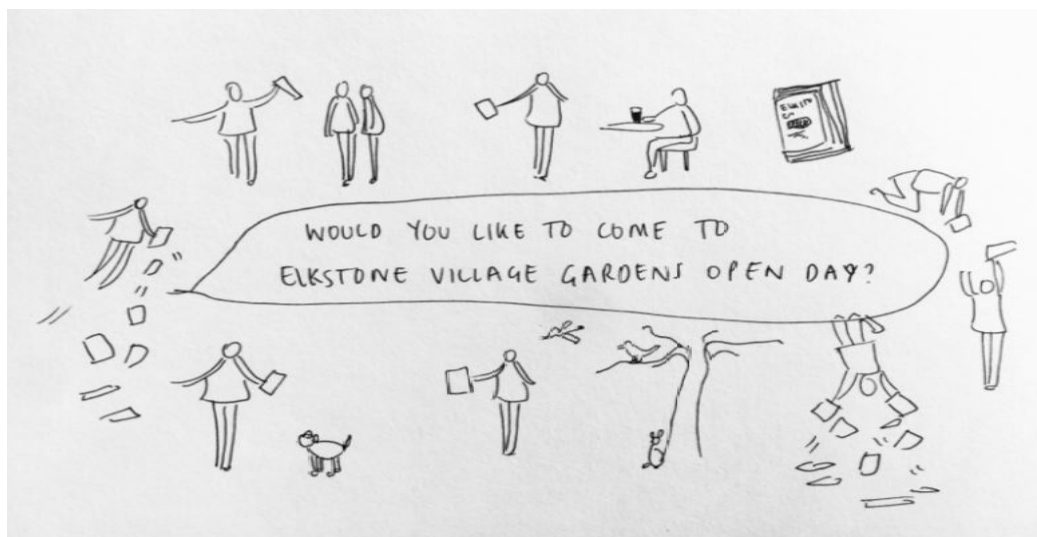 WOULD YOU LIKE TO COME TO
ELKSTONE VILLAGE GARDENS OPEN DAY?